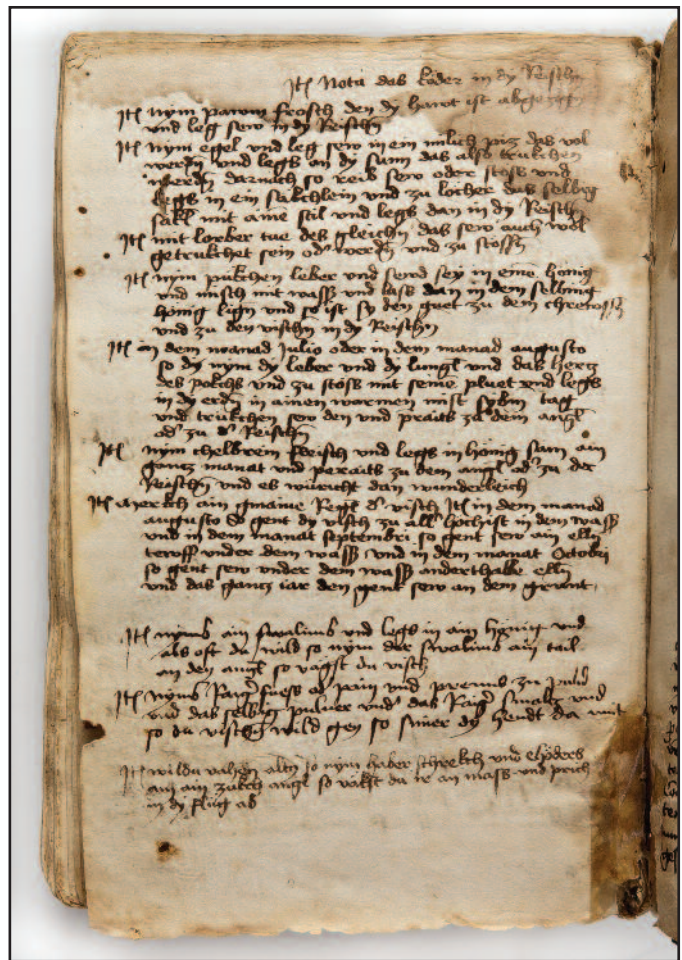 Itē Nota das köder in dy Reischn
Itē nym pawm frosch den dy hawt ist abgezogē
und leg sew in dy Reischn
Itē nym egel und leg sew in ein milich piz das vol
werdn und legs an dy sunn das also trukchen
werdn darnach so reib sew oder stoss und
legs in ein säkchlein und zu locher das selbig
sakl mit aine stil und legs dan in dy Reisch
Itē mit lorber tue des gleichn das sew auch wol
getrukhet sein od' werdn und zu stossn
Itē nym pukchen leber und sewd sey in eine hönig
und misch mit wasß und lass dan in dem selbing
hönig lign und so ist sy den guet zu dem chrewssn
und zu den vischn in dy Reischn
Itē an dem manad Julio oder in dem manad augusto
so dy nym dy leber und dy lungl und das hercz
des polchs und zu stoss mit seine pluet und legs
in dy erdn in ainen warmen mist sybm tag
und trukchen sew den und praits zu dem angl
od' zu d' Reischn
Itē nym chelbrein fleisch und legs in hönig sam ain
gancz manat und peraits zu dem angl od' zu der
Reischn und es würicht dan wunderleich
Itē merkch ain gmaine Regl d' visch Itē in dem manad
augusto So gent dy visch zu all' höchist in dem wasß
und in dem manat septembri so gent sew ain elln
teroff under dem wasß und in dem manat Octobri
so gent sew under dem wasß anderthalbe elln
und das gancz iar den gent sew an dem grunt
Itē nyms ain swalims und legs in ain hönig und
als oft du wild so nym der swalims ain tail
an den angl so vägst du visch
Itē nyms Raigl fuess od' pain und prenns zu puluer
und das selbig puluer und' das Raigl smalcz und
so du vischn wild gen so smier dy hendt da mit
Itē wildu vahen altn so nym haber schrekch und
an ain zukch angl so vahst du ir an mass und prich
in dy flüg ab